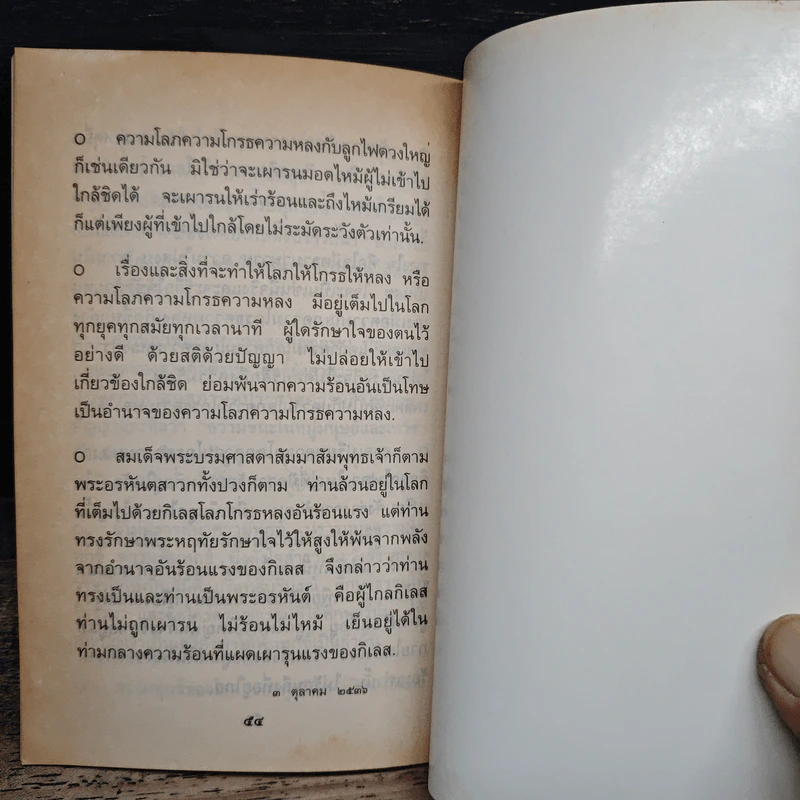 ๐ ความโลภความโกรธความหลงกับลูกไฟดวงใหญ่
ก็เช่นเดียวกัน มิใช่ว่าจะเผารนมอดไหม้ผู้ไม่เข้าไป
ใกล้ชิดได้ จะเผารนให้เร่าร้อนและถึงไหม้เกรียมได้
ก็แต่เพียงผู้ที่เข้าไปใกล้โดยไม่ระมัดระวังตัวเท่านั้น.
๐ เรื่องและสิ่งที่จะทำให้โลภให้โกรธให้หลง หรือ
ความโลภความโกรธความหลง มีอยู่เต็มไปในโลก
ทุกยุคทุกสมัยทุกเวลานาที ผู้ใดรักษาใจของตนไว้
อย่างดี ด้วยสติด้วยปัญญา ไม่ปล่อยให้เข้าไป
เกี่ยวข้องใกล้ชิด ย่อมพ้นจากความร้อนอันเป็นโทษ
เป็นอำนาจของความโลภความโกรธความหลง.
๐ สมเด็จพระบรมศาสดาสัมมาสัมพุทธเจ้าก็ตาม
พระอรหันตสาวกทั้งปวงก็ตาม ท่านล้วนอยู่ในโลก
ที่เต็มไปด้วยกิเลสโลภโกรธหลงอันร้อนแรง แต่ท่าน
ทรงรักษาพระหฤทัยรักษาใจไว้ให้สูงให้พ้นจากพลัง
จากอำนาจอันร้อนแรงของกิเลส จึงกล่าวว่าท่าน
ทรงเป็นและท่านเป็นพระอรหันต์ คือผู้ไกลกิเลส
ท่านไม่ถูกเผารน ไม่ร้อนไม่ไหม้ เย็นอยู่ได้ใน
ท่ามกลางความร้อนที่แผดเผารุนแรงของกิเลส.
๓ ตุลาคม ๒๕๓๖
๕๔